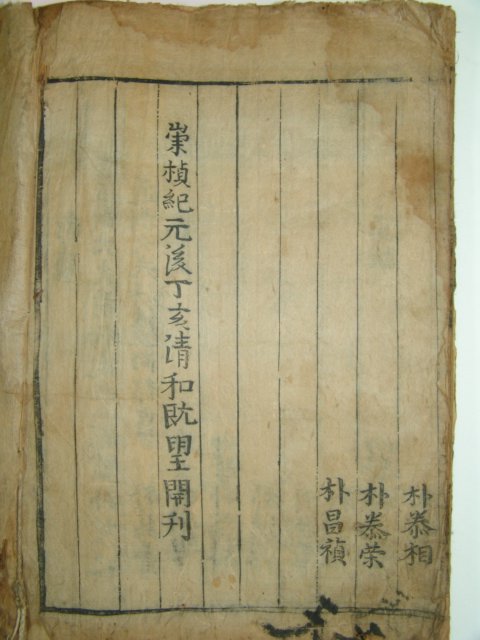 朴泰相
朴泰荣
朴昌禎
崇楨紀元後丁亥清和旣望開刊